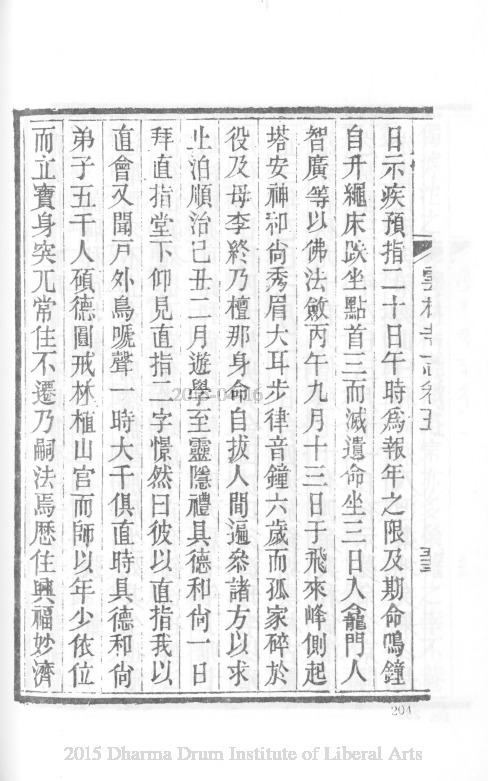 日示疾預指二十日午時爲報年之限及期命鳴鐘
自升繩床趺坐點首三而滅遺命坐三日入龕門人
智廣等以佛法斂丙午九月十三日于飛來峰側起
塔安神和尙秀眉大耳步律音鐘六歲而孤家碎於
役及母李終乃檀那身命自拔人間遍叅諸方以求
止泊順治己丑二月遊學至靈隱禮具德和尙一日
拜直指堂下仰見直指二字憬然曰彼以直指我以
直會又聞戸外鳥嗁聲一時大千俱直時具德和尙
弟子五千人碩德圓戒林植山宮而師以年少依位
而立寶身突兀常住不遷乃嗣法焉歷住興福妙濟
204
2015 Dharma Drum Institute of Liberal Arts